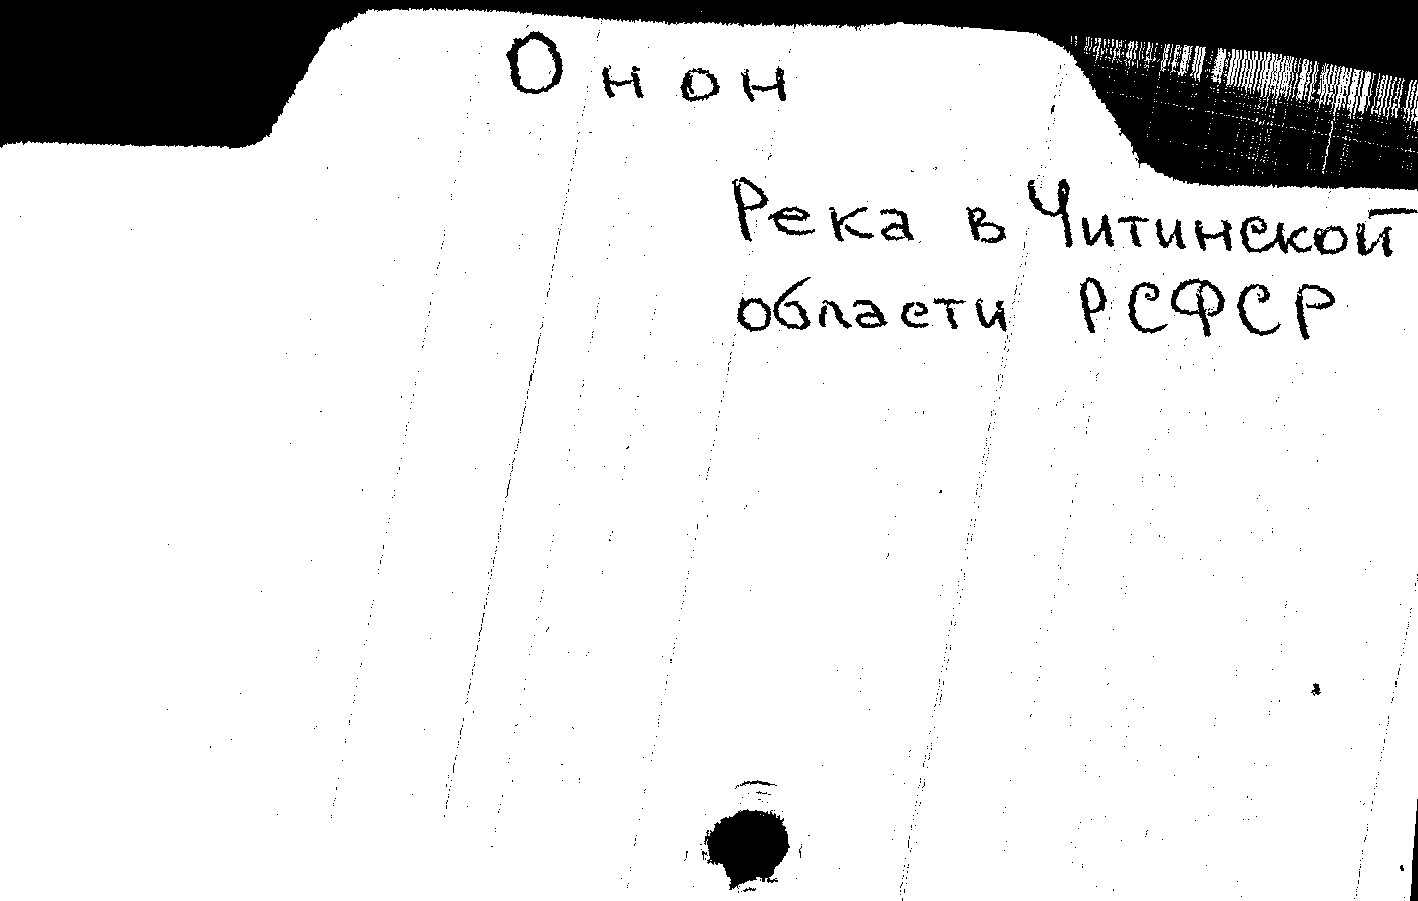 Онон
Река в Читинской
области РСФСР